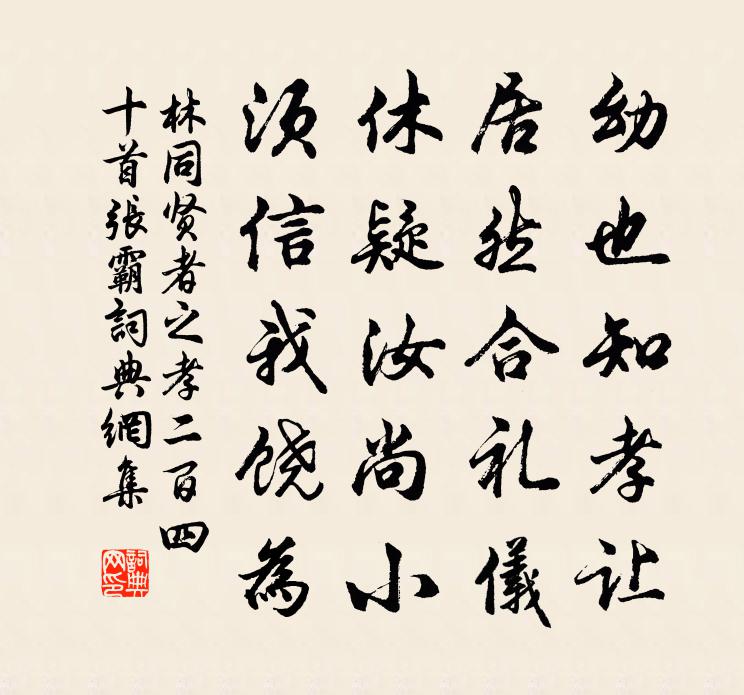 幼也知孝让
居然合礼儀
休疑汝尚小
须信我饶為
林同贤者之孝二百四
十首張霸詞典網集
詞典网印